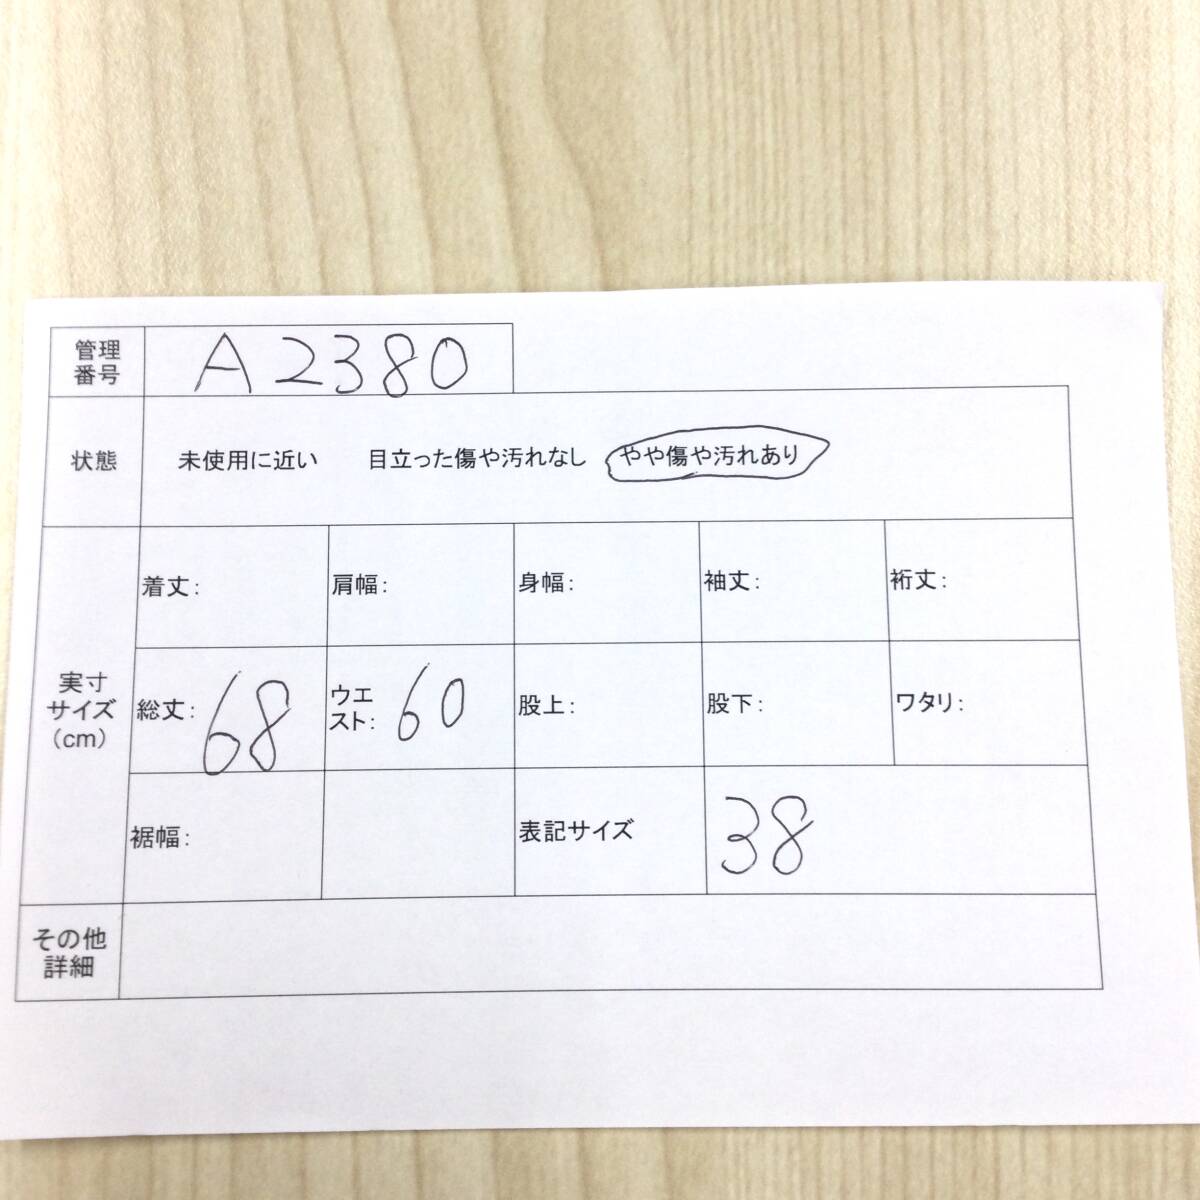 管理
番号
A2380
状態
未使用に近い 目立った傷や汚れなし やや傷や汚れあり
実寸
サイズ
(cm)
着丈: 肩幅: 身幅: 袖丈: 裄丈:
総丈: 68
ウエ
スト: 60
股上: 股下: ワタリ:
裾幅: 表記サイズ 38
その他
詳細